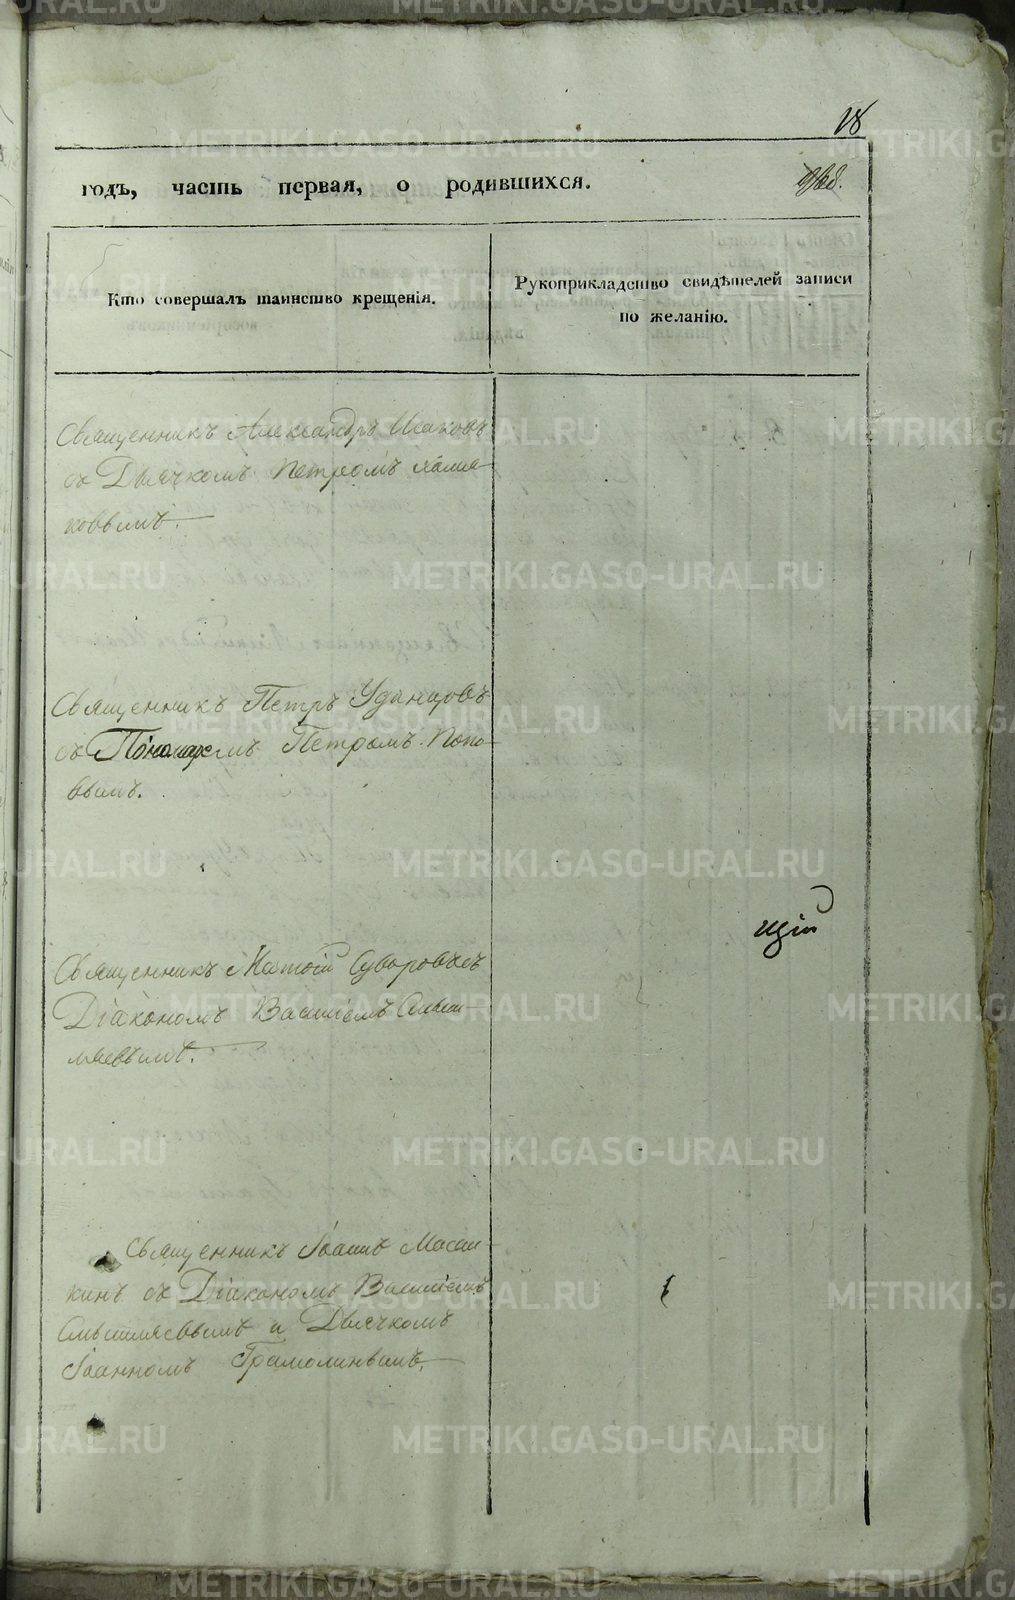 18
годъ, часть первая, о родившихся.
Кто совершалъ таинство крещенія.
Рукоприкладство свидѣтелей записи
по желанію.
Священникъ Александръ Исаковъ
съ Дьячкомъ Петромъ
ковымъ.
Священникъ Петръ Удинцовъ
съ Пономаремъ Петромъ Попо-
вымъ.
щій
Священникъ Суворовъ съ
Діакономъ Василіемъ
Священникъ Іоаннъ
съ Діакономъ Василіемъ
и Дьячкомъ
Іоанномъ Грамолинымъ.
METRIKI.GASO-URAL.RU